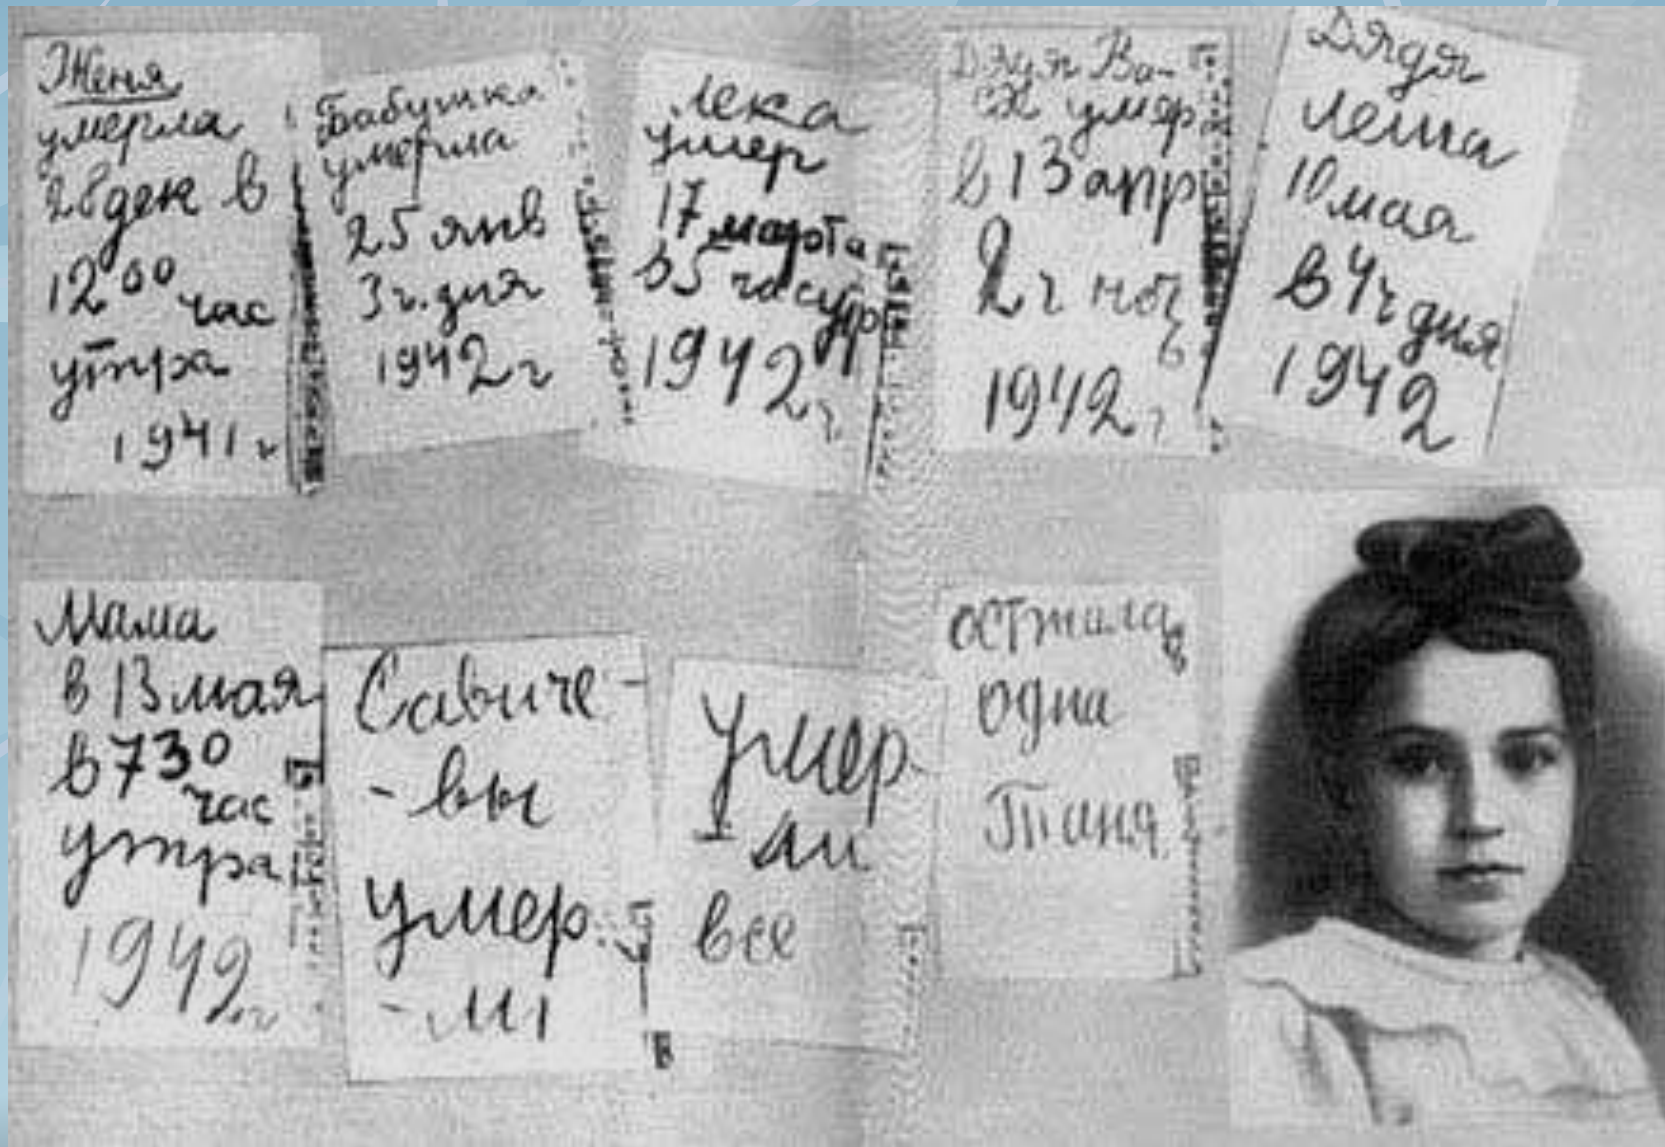 Женя
умерла
28 дек в
12 00 час
утра
1941 г
Бабушка
умерла
25 янв
3 ч. дня
1942 г
Лека
умер
17 марта
в 5 час утр
1942 г.
Дядя Ва-
ся умер
в 13 апр
2 ч ноч
ь
1942 г
Дядя
Леша
10 мая
в 4 ч дня
1942
Мама
в 13 мая
в 7 30
час
утра
1942 г
Савиче-
-вы
умер
-ли
умер
ли
все
осталась
одна
Таня